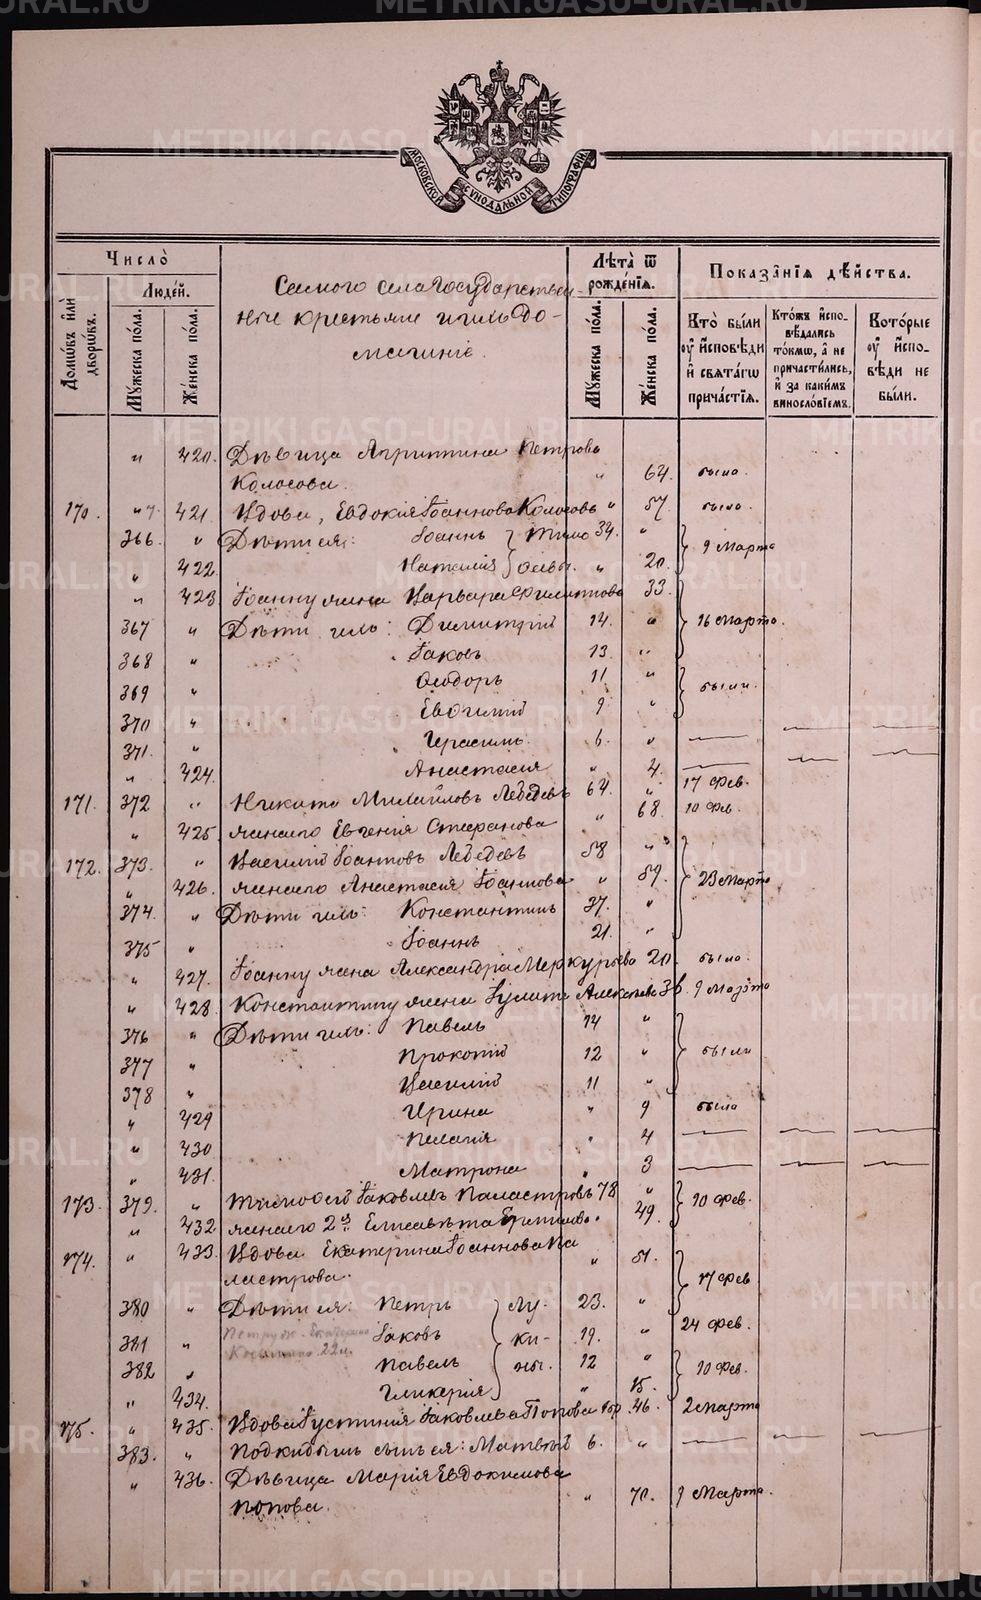 METRIKI.GASO-URAL.RU
МОСКОВСКОЙ СѴНОДАЛЬНОЙ ТИПОГРАФІИ
Число̀
Людє́й.
Домѡ́въ и҆лѝ дворѡ́въ.
Мꙋ́жеска по́ла.
Же́нска по́ла.
Самого села Государствен-
ные крестьяне и ихъ до-
машніе.
Лѣ́та ѿ рожде́нїѧ.
Мꙋ́жеска по́ла.
Же́нска по́ла.
Показа̑нїѧ дѣ́йства.
Кто̀ бы́ли оу҆ и҆сповѣ́ди и҆ свѧта́гѡ прича́стїѧ.
Кто́жъ и҆спо-вѣ́дались то́кмѡ, а҆ не причасти́лись, и҆ за каки́мъ винослові́емъ.
Кото́рые оу҆ и҆спо-вѣ́ди не бы́ли.
" 420. Дѣвица Агриппина Петрова
Колосова. " 64. была.
170. " 421. Вдова, Евдокія Іоаннова Колосова " 57. была.
366. " Дѣти ея: Іоаннъ 34. "
" 422. Наталія " 20. 9 Марта
" 423 Іоанну жена Варвара Филиппова 33.
367 " Дѣти ихъ: Димитрій 14. " 16 Марта.
368 " Іаковъ 13. "
369 " Ѳеодоръ 11 " были.
370 " Евѳимій 9 "
371. " Герасимъ. 6. "
" 424. Анастасія " 4.
171. 372 " Никита Михайловъ Лебедевъ 64. " 17 Фев.
" 425 жена его Евгенія Стефанова " 68. 10 Фев.
172. 373. " Василій Іоанновъ Лебедевъ 58 "
" 426. жена его Анастасія Іоаннова " 59. 23 Марта
374. " Дѣти ихъ: Константинъ 37. "
375 " Іоаннъ 21. "
" 427. Іоанну жена Александра Меркурьева 20. была.
" 428. Константину жена Іулита Алексѣева 36. 9 Марта
376 " Дѣти ихъ: Павелъ 14 "
377 " Прокопій 12 " были
378 " Василій 11 "
" 429 Ирина " 9 была
" 430 Пелагія " 4
" 431. Матрона " 3
173. 379. " Тимоѳей Іаковлевъ Паластровъ 78 "
" 432 жена его 2я Елисавета " 49. 10 Фев.
174. " 433. Вдова Екатерина Іоаннова Па
ластрова. " 51. 17 Фев
380 " Дѣти ея: Петръ Лу- 23. "
381 " Іаковъ ки- 19. " 24 Фев.
382 " Павелъ ны. 12 " 10 Фев.
" 434. Гликерія " 15.
175. " 435. Вдова Іустинія Іаковлева Попова 46. 2 Марта
383. " Подкидышъ сынъ ея: Матвѣй 6. "
" 436. Дѣвица Марія Евдокимова
Попова. " 70. 9 Марта.